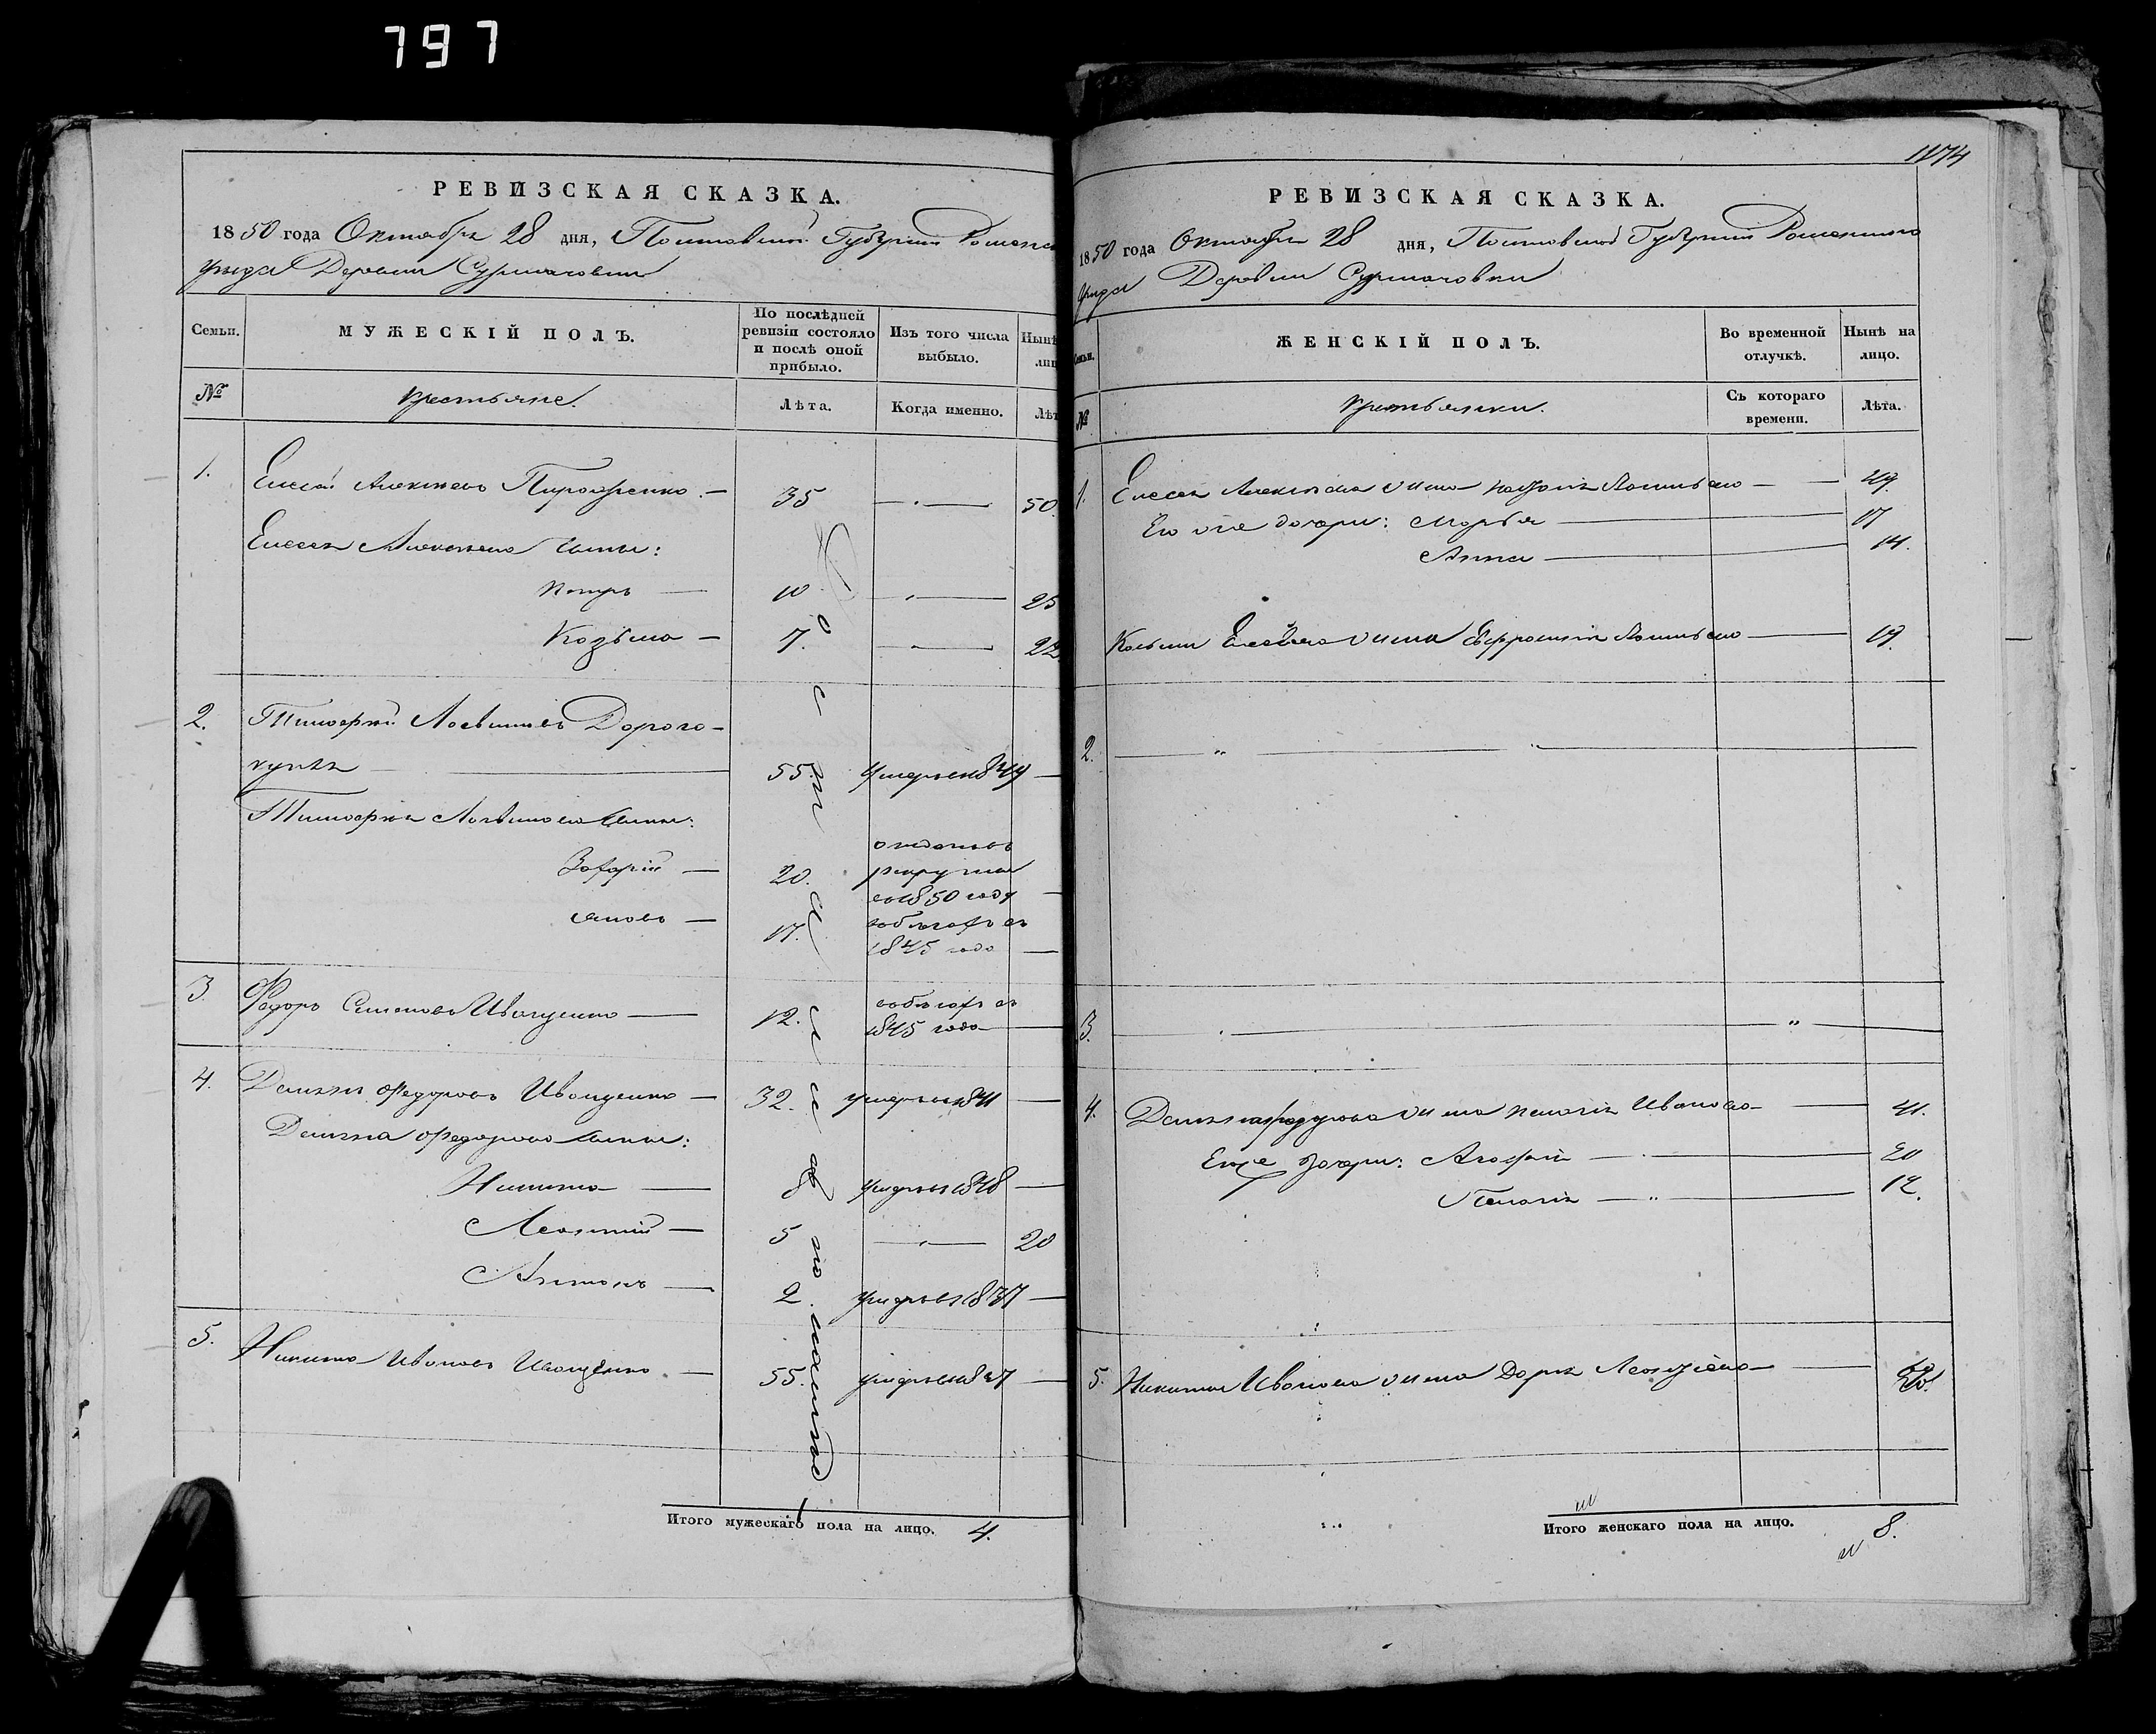 797
РЕВИЗСКАЯ СКАЗКА.
1850 года Октября 28 дня, Полтавской Губерніи Роменска
уезда Деревни Сурмачовки
Семьи.
МУЖЕСКІЙ ПОЛЪ.
По послѣдней ревизіи состояло и послѣ оной прибыло.
Изъ того числа выбыло.
Нынѣ
лиц
№
крестьяне.
Лѣта.
Когда именно.
Лѣт
1. Елисей Алексѣевъ — 35 — 50.
Елисея Алексѣева сыны:
Петръ — 10 — 25
Козьма — 7. — 22.
2. Тимофей Логвиновъ Дорого-
55. умеръ въ 1849 —
Тимофея Логвинова сыны:
Захарій — 20. отданъ въ
рекруты
въ 1850 году —
Яковъ — 17. въ бѣгахъ съ
1845 года —
3. Федоръ Семеновъ Иващенко — 12. въ бѣгахъ съ
1845 года —
4. Демьянъ Федоровъ Иващенко — 32. умеръ въ 1841 —
Демьяна Федорова сыны:
Никита — 8 умеръ въ 1848 —
Леонтій — 5 — 20
Антонъ — 2. умеръ въ 1837 —
5. Никита Ивановъ Иващенко — 55. умеръ въ 1847 —
Итого мужескаго пола на лицо. 4.
1174
РЕВИЗСКАЯ СКАЗКА.
1850 года Октября 28 дня, Полтавской Губерніи Роменскаго
уезда Деревни Сурмачовки
Семьи.
ЖЕНСКІЙ ПОЛЪ.
Во временной отлучкѣ.
Нынѣ на лицо.
№
крестьянки.
Съ котораго времени.
Лѣта.
1. Елисея Алексѣева жена Васильева — 49.
Его же дочери: Марья — 17
Анна — 14.
Козьмы Елисѣева жена Ефросинія Васильева — 19.
2.
3.
4. Демьяна Федорова жена Пелагія Иванова — 41.
Еще дочери: Агафія — 20
Пелагія — 12.
5. Никиты Иванова жена Дарья Леонтіева —
Итого женскаго пола на лицо. 8.